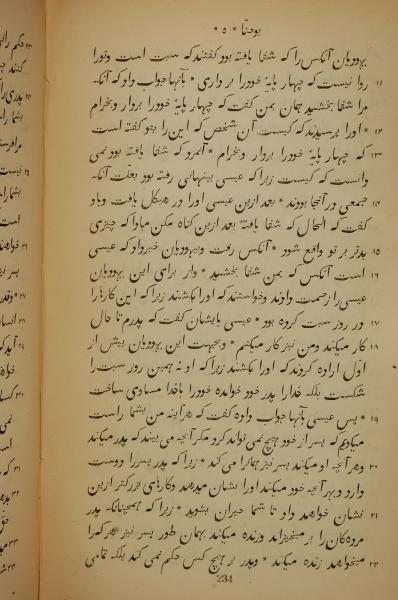 یوحنا * ۵ *
یهودیان آنکس را که شفا یافته بود گفتند که سبت است و ترا
۱۱ روا نیست که چهار پایهٔ خود را بر داری * بآنها جواب داد که آنکه
مرا شفا بخشید همان بمن گفت که چهار پایهٔ خود را بردار و بخرام
۱۲ * اورا پرسیدند که کیست آن شخص که این را بتو گفته است
۱۳ که چهار پایهٔ خود را بردار و بخرام * آنمرد که شفا یافته بود نمی
دانست که کیست زیرا که عیسی پنهانی رفته بود بعلت آنکه
۱۴ جمعی در آنجا بودند * بعد ازین عیسی اورا در هیکل یافت و باو
گفت که الحال که شفا یافتهٔ بعد ازین گناه مکن مبادا که چیزی
۱۵ بدتر بر تو واقع شود * آنکس رفت و یهودیان خبر داد که عیسی
۱۶ است آنکس که بمن شفا بخشید * و از برای این یهودیان
عیسی را زحمت دادند و خواستند که اورا بکشند زیرا که این کارها را
۱۷ در روز سبت کرده بود * عیسی بایشان گفت که پدرم تا حال
۱۸ کار میکند و من نیز کار میکنم * و بجهت این یهودیان بیش از
اول اراده کردند که اورا بکشند زیرا که او نه همین روز سبت را
شکست بلکه خدا را پدر خود خوانده خود را با خدا مساوی ساخت
۱۹ * پس عیسی بآنها جواب داده گفت که هر اینه من بشما راست
میگویم که پسر از خود هیچ نمی تواند کرد مگر آنچه می بیند که پدر میکند
۲۰ و هر آنچه او میکند پسر نیز همانرا می کند * زیرا که پدر پسر را دوست
دارد و بهر آنچه خود میکند اورا نشان میدهد و کارهای بزرگتر ازین
۲۱ نشان خواهد داد تا شما حیران بشوید * زیرا که همچنانکه پدر
مردگان را بر میخیزاند و زنده میکند بهمان طور پسر نیز هر که را
۲۲ میخواهد زنده میکند * و پدر بر هیچ کس حکم نمی کند بلکه تمامی
234